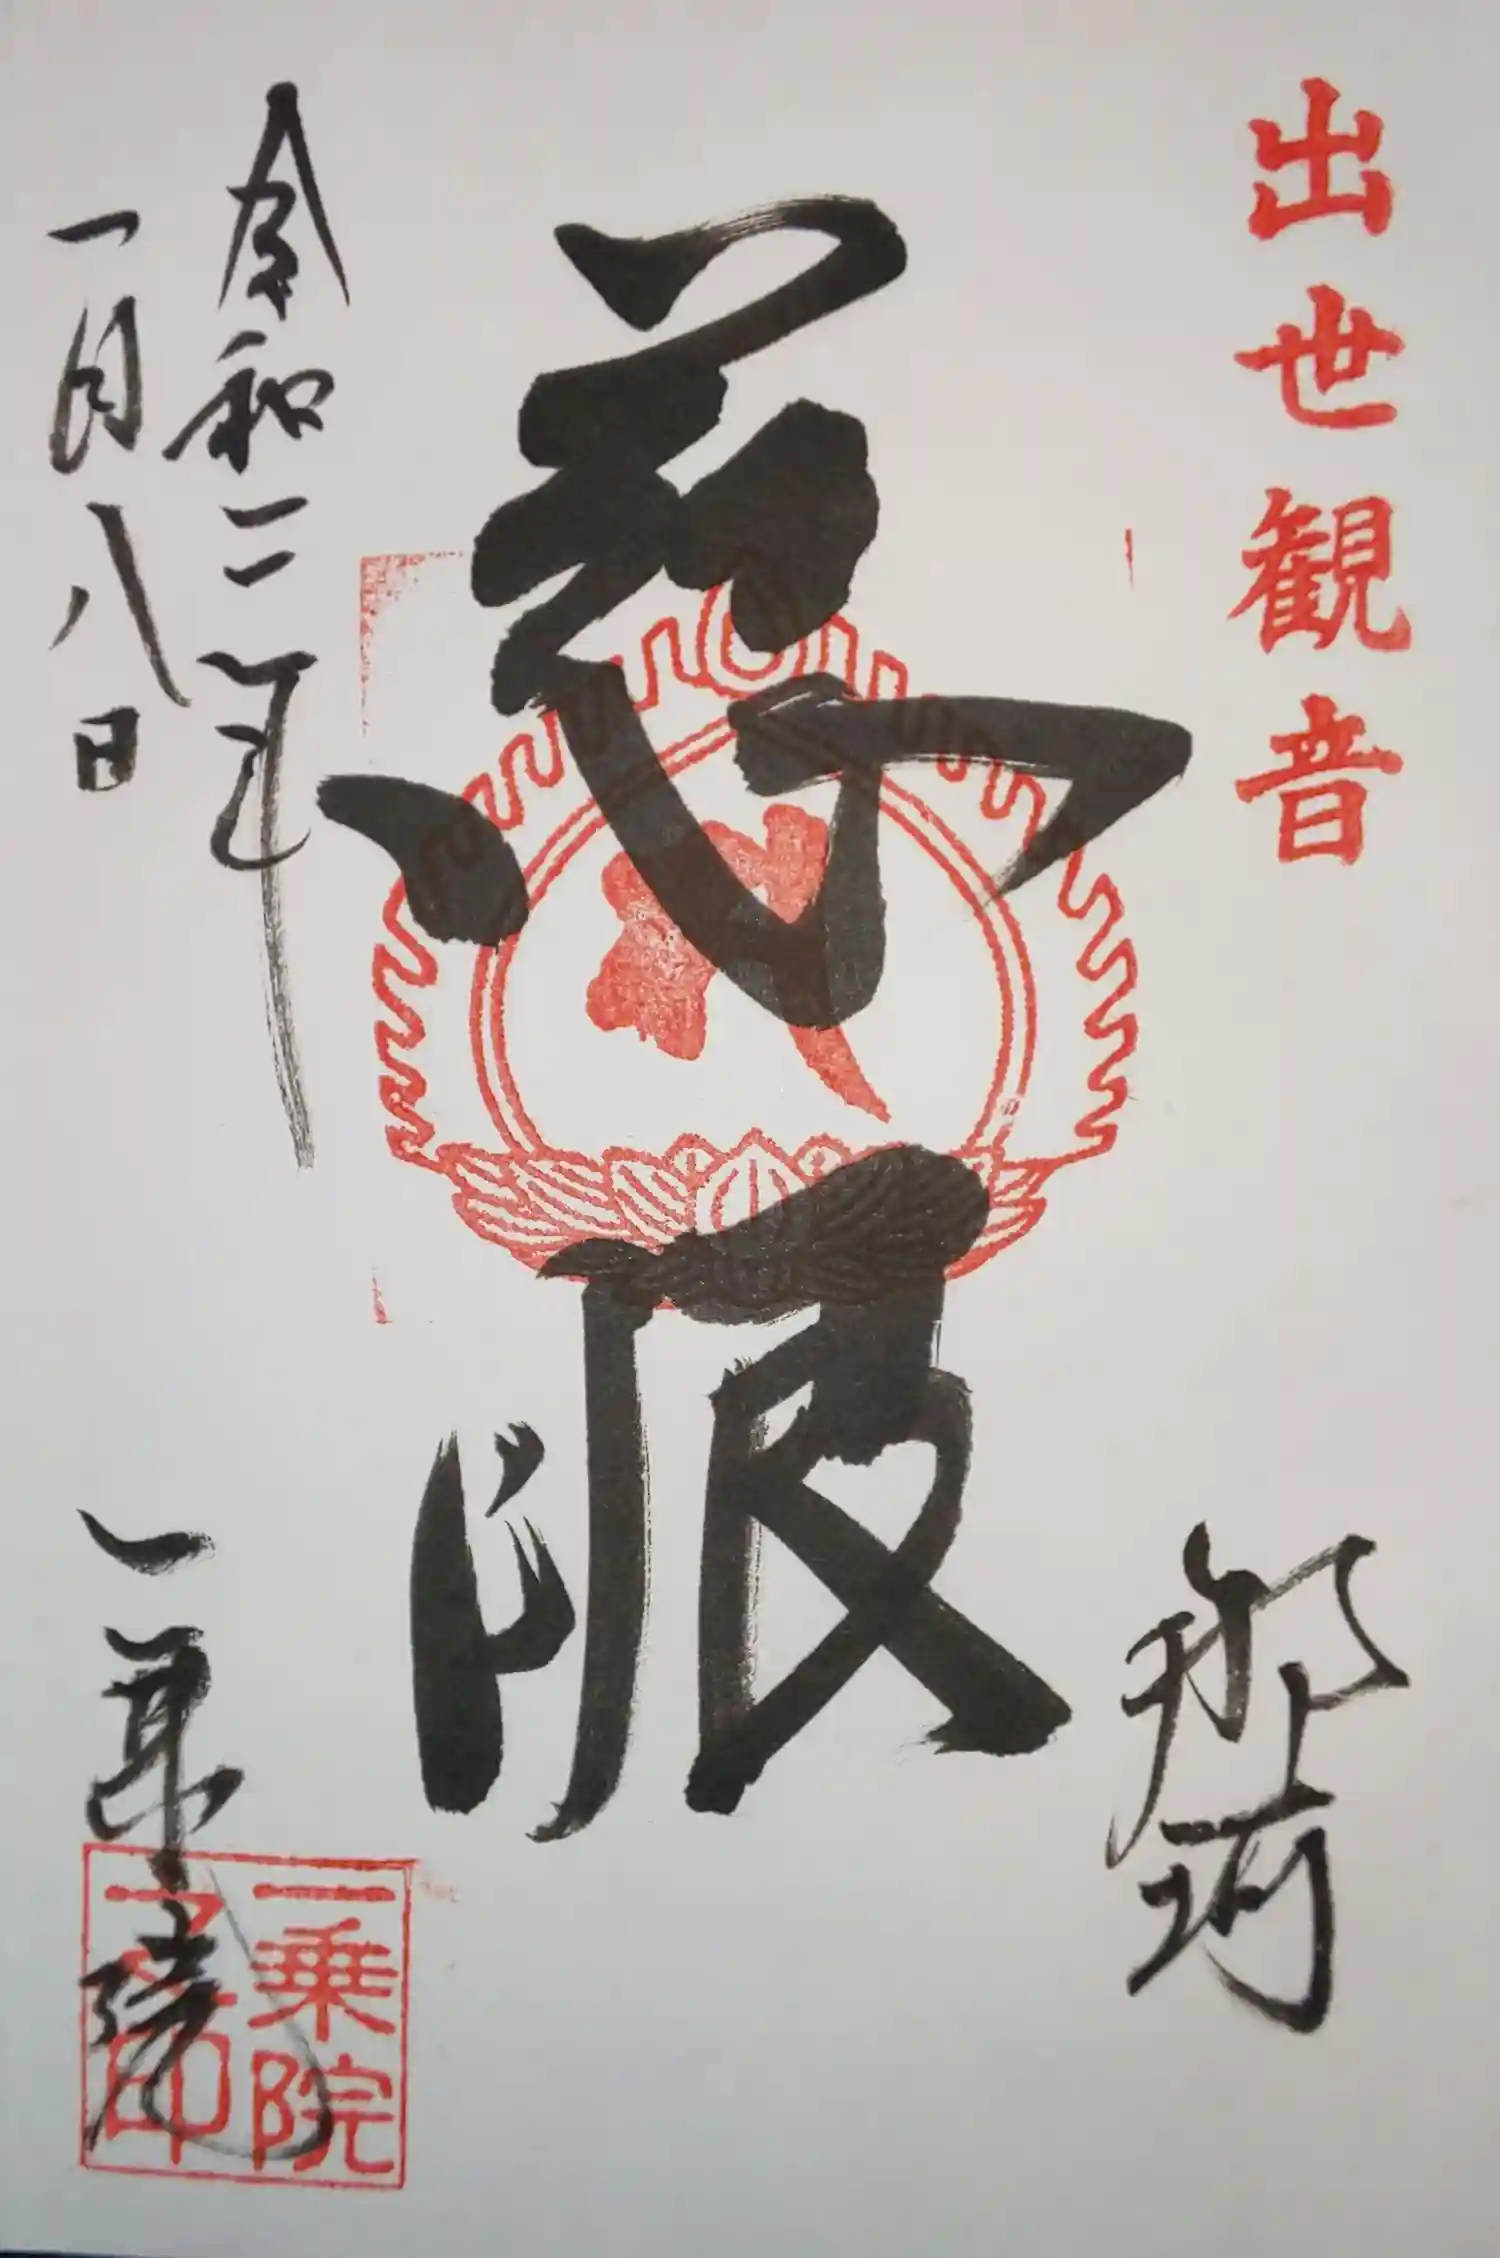 出世観音
慈眼
令和二年
一月八日
一乗院
一乗院
印